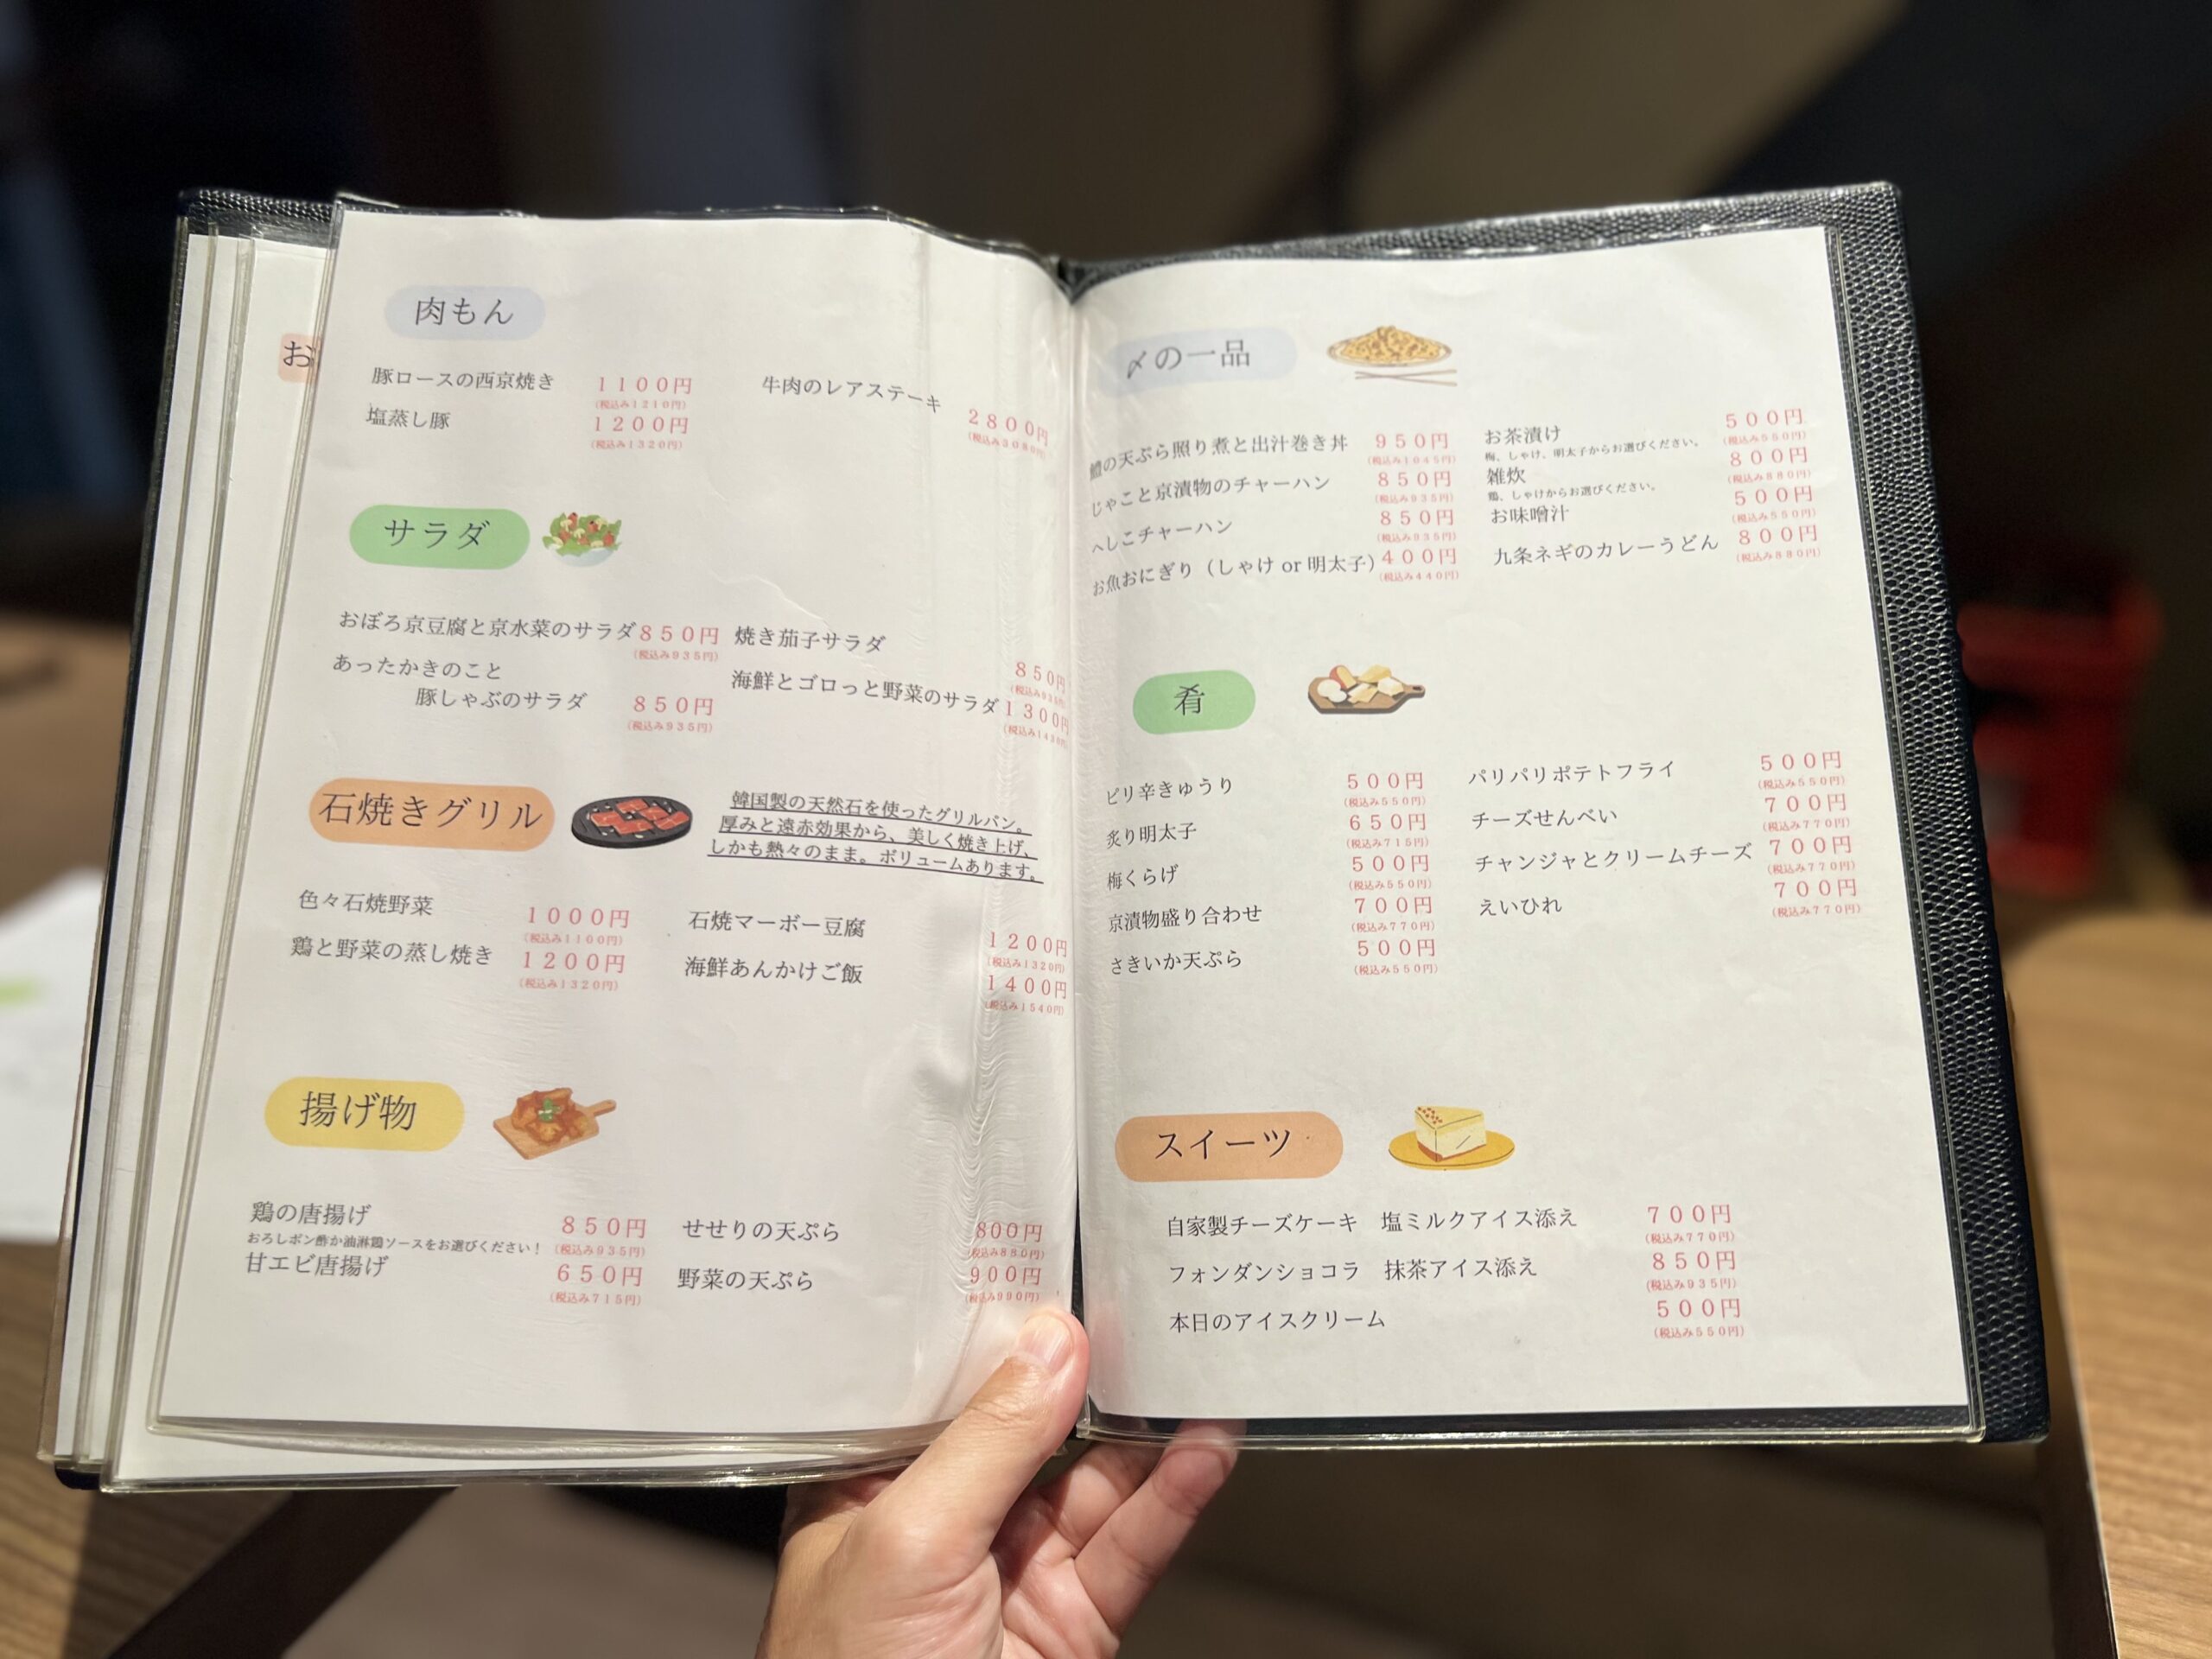 お
肉もん
豚ロースの西京焼き 1100円
(税込み1210円)
塩蒸し豚 1200円
(税込み1320円)
牛肉のレアステーキ 2800円
(税込み3080円)
サラダ
おぼろ京豆腐と京水菜のサラダ 850円
(税込み935円)
あったかきのこと
豚しゃぶのサラダ 850円
(税込み935円)
焼き茄子サラダ 850円
(税込み935円)
海鮮とゴロっと野菜のサラダ 1300円
(税込み1430円)
石焼きグリル
韓国製の天然石を使ったグリルパン。
厚みと遠赤効果から、美しく焼き上げ、
しかも熱々のまま。ボリュームあります。
色々石焼野菜 1000円
(税込み1100円)
鶏と野菜の蒸し焼き 1200円
(税込み1320円)
石焼マーボー豆腐 1200円
(税込み1320円)
海鮮あんかけご飯 1400円
(税込み1540円)
揚げ物
鶏の唐揚げ 850円
おろしポン酢か油淋鶏ソースをお選びください! (税込み935円)
甘エビ唐揚げ 650円
(税込み715円)
せせりの天ぷら 800円
(税込み880円)
野菜の天ぷら 900円
(税込み990円)
〆の一品
鱧の天ぷら照り煮と出汁巻き丼 950円
(税込み1045円)
じゃこと京漬物のチャーハン 850円
(税込み935円)
へしこチャーハン 850円
(税込み935円)
お魚おにぎり(しゃけ or 明太子) 400円
(税込み440円)
お茶漬け 500円
梅、しゃけ、明太子からお選びください。 (税込み550円)
雑炊 800円
鶏、しゃけからお選びください。 (税込み880円)
お味噌汁 500円
(税込み550円)
九条ネギのカレーうどん 800円
(税込み880円)
肴
ピリ辛きゅうり 500円
(税込み550円)
炙り明太子 650円
(税込み715円)
梅くらげ 500円
(税込み550円)
京漬物盛り合わせ 700円
(税込み770円)
さきいか天ぷら 500円
(税込み550円)
パリパリポテトフライ 500円
(税込み550円)
チーズせんべい 700円
(税込み770円)
チャンジャとクリームチーズ 700円
(税込み770円)
えいひれ 700円
(税込み770円)
スイーツ
自家製チーズケーキ 塩ミルクアイス添え 700円
(税込み770円)
フォンダンショコラ 抹茶アイス添え 850円
(税込み935円)
本日のアイスクリーム 500円
(税込み550円)